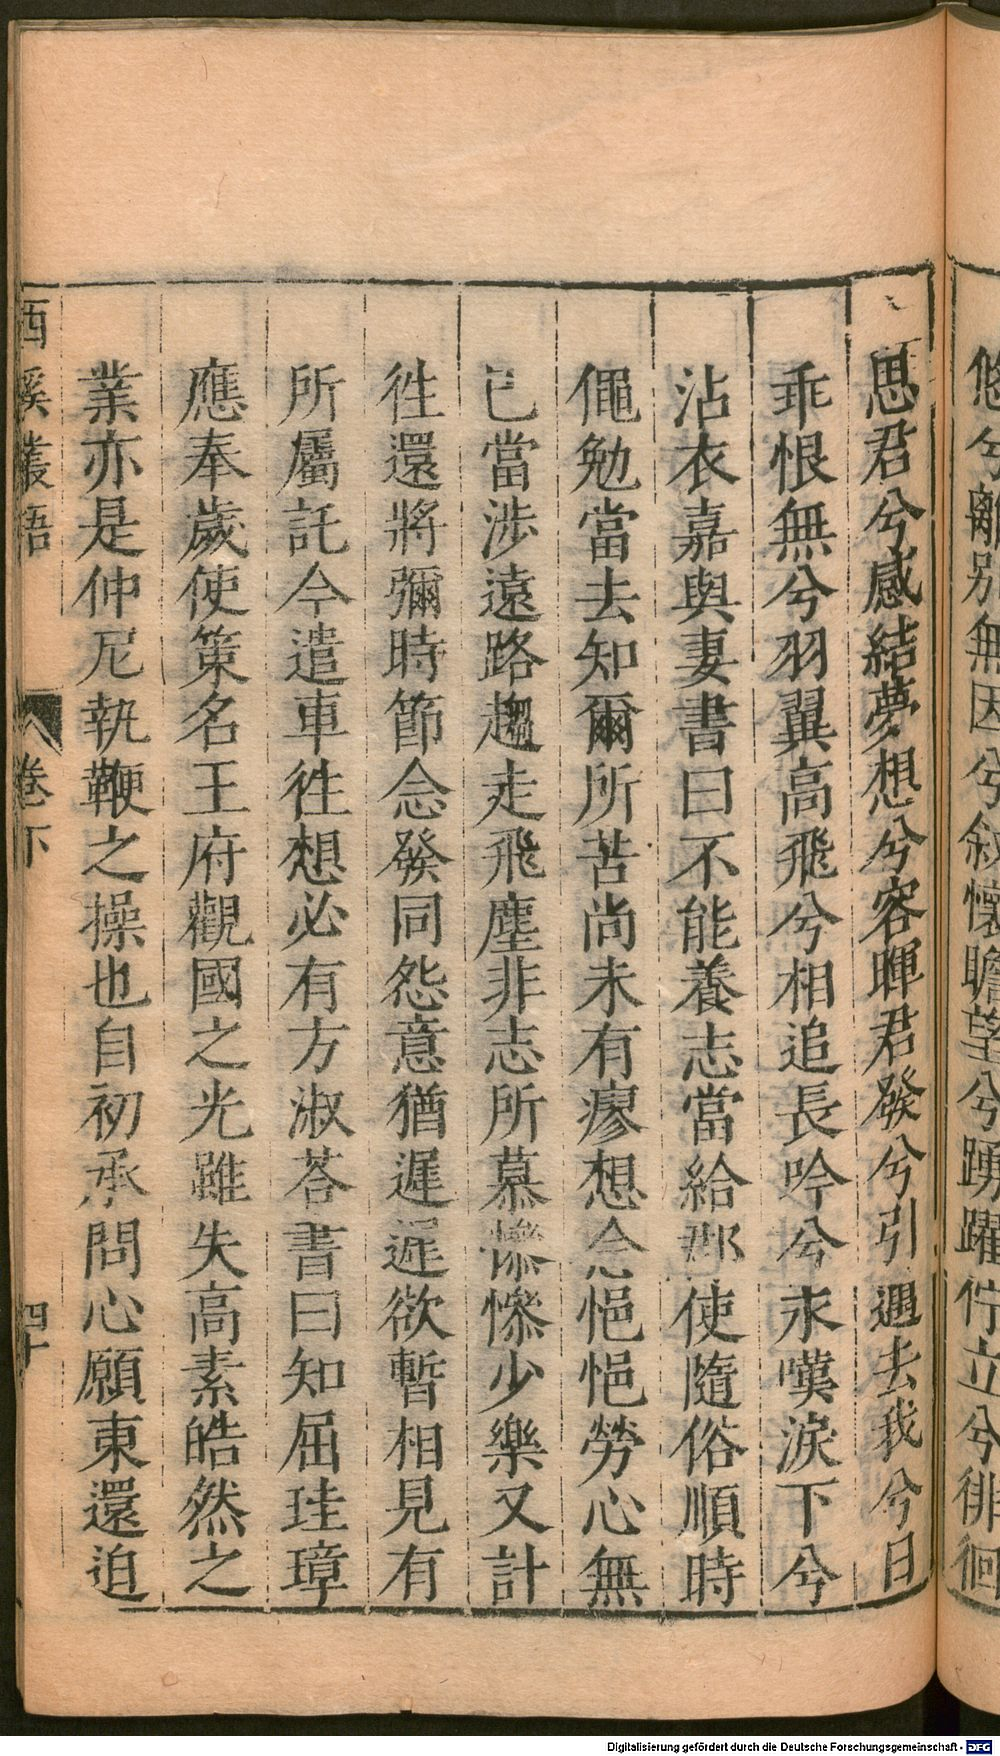 悠兮離别無因兮敘懷瞻望兮踴躍佇立兮徘徊
思君兮感結夢想兮容暉君發兮引邁去我兮日
乖恨無兮羽翼高飛兮相追長吟兮永嘆淚下兮
沾衣嘉與妻書曰不能養志當給郡使隨俗順時
僶勉當去知爾所苦尚未有瘳想念悒悒勞心無
已當涉遠路趨走飛塵非志所慕慘慘少樂又計
徃還將彌時節念發同怨意猶遲遲欲暫相見有
所屬託今遣車徃想必有方淑荅書曰知屈珪璋
應奉歲使策名王府觀國之光雖失高素皓然之
業亦是仲尼執鞭之操也自初承問心願東還迫
西溪叢語 卷下 四十
Digitalisierung gefördert durch die Deutsche Forschungsgemeinschaft - DFG